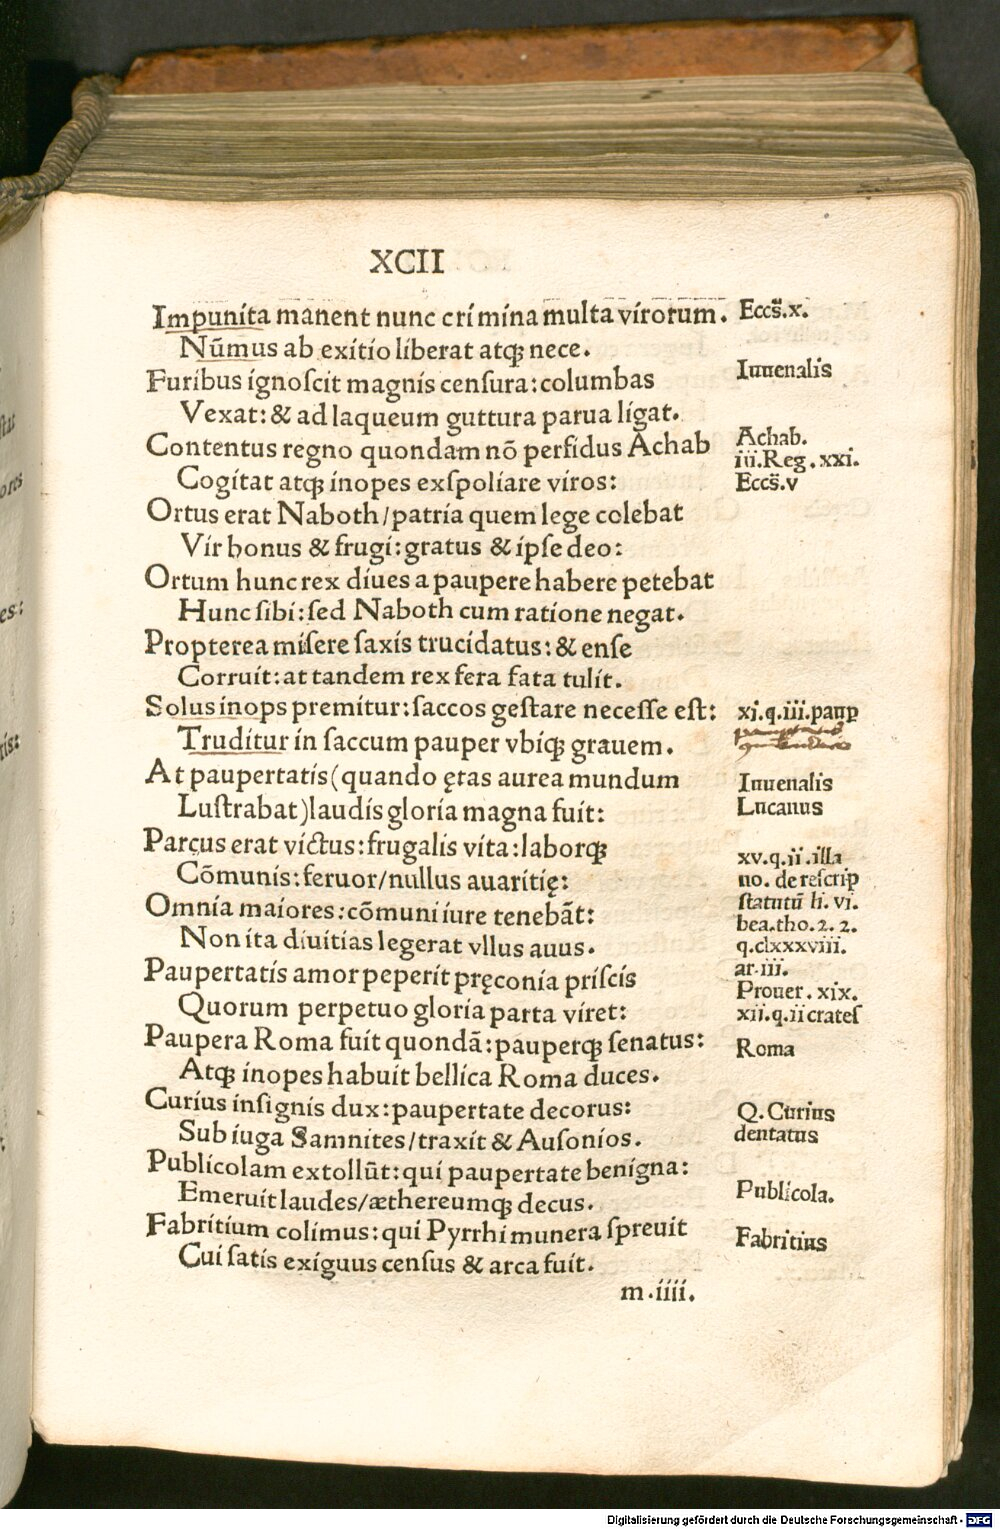 XCII
Impunita manent nunc crimina multa virorum.
Nūmus ab exitio liberat atqꝫ nece.
Furibus ignoſcit magnis cenſura: columbas
Vexat: & ad laqueum guttura parua ligat.
Contentus regno quondam nō perfidus Achab
Cogitat atqꝫ inopes exſpoliare viros:
Ortus erat Naboth/patria quem lege colebat
Vir bonus & frugi: gratus & ipſe deo:
Ortum hunc rex diues a paupere habere petebat
Hunc ſibi: ſed Naboth cum ratione negat.
Propterea miſere ſaxis trucidatus: & enſe
Corruit: at tandem rex fera fata tulit.
Solus inops premitur: ſaccos geſtare neceſſe eſt:
Truditur in ſaccum pauper vbiqꝫ grauem.
At paupertatis (quando ętas aurea mundum
Luſtrabat) laudis gloria magna fuit:
Parcus erat victus: frugalis vita: laborqꝫ
Cōmunis: feruor/nullus auaritię:
Omnia maiores: cōmuni iure tenebāt:
Non ita diuitias legerat vllus auus.
Paupertatis amor peperit pręconia priſcis
Quorum perpetuo gloria parta viret:
Paupera Roma fuit quondā: pauperqꝫ ſenatus:
Atqꝫ inopes habuit bellica Roma duces.
Curius inſignis dux: paupertate decorus:
Sub iuga Samnites/traxit & Auſonios.
Publicolam extollūt: qui paupertate benigna:
Emeruit laudes/æthereumqꝫ decus.
Fabritium colimus: qui Pyrrhi munera ſpreuit
Cui ſatis exiguus cenſus & arca fuit.
m.iiii.
Eccs̄.x.
Iuuenalis
Achab.
iii.Reg.xxi.
Eccs̄.v
xi.q.iii.pauꝑ
Iuuenalis
Lucanus
xv.q.ii.illa
no. de reſcrip
ſtatutū li. vi.
bea.tho.2.2.
q.clxxxviii.
ar.iii.
Prouer.xix.
xii.q.ii crateſ
Roma
Q.Curius
dentatus
Publicola.
Fabritius
Digitalisierung gefördert durch die Deutsche Forschungsgemeinschaft - DFG